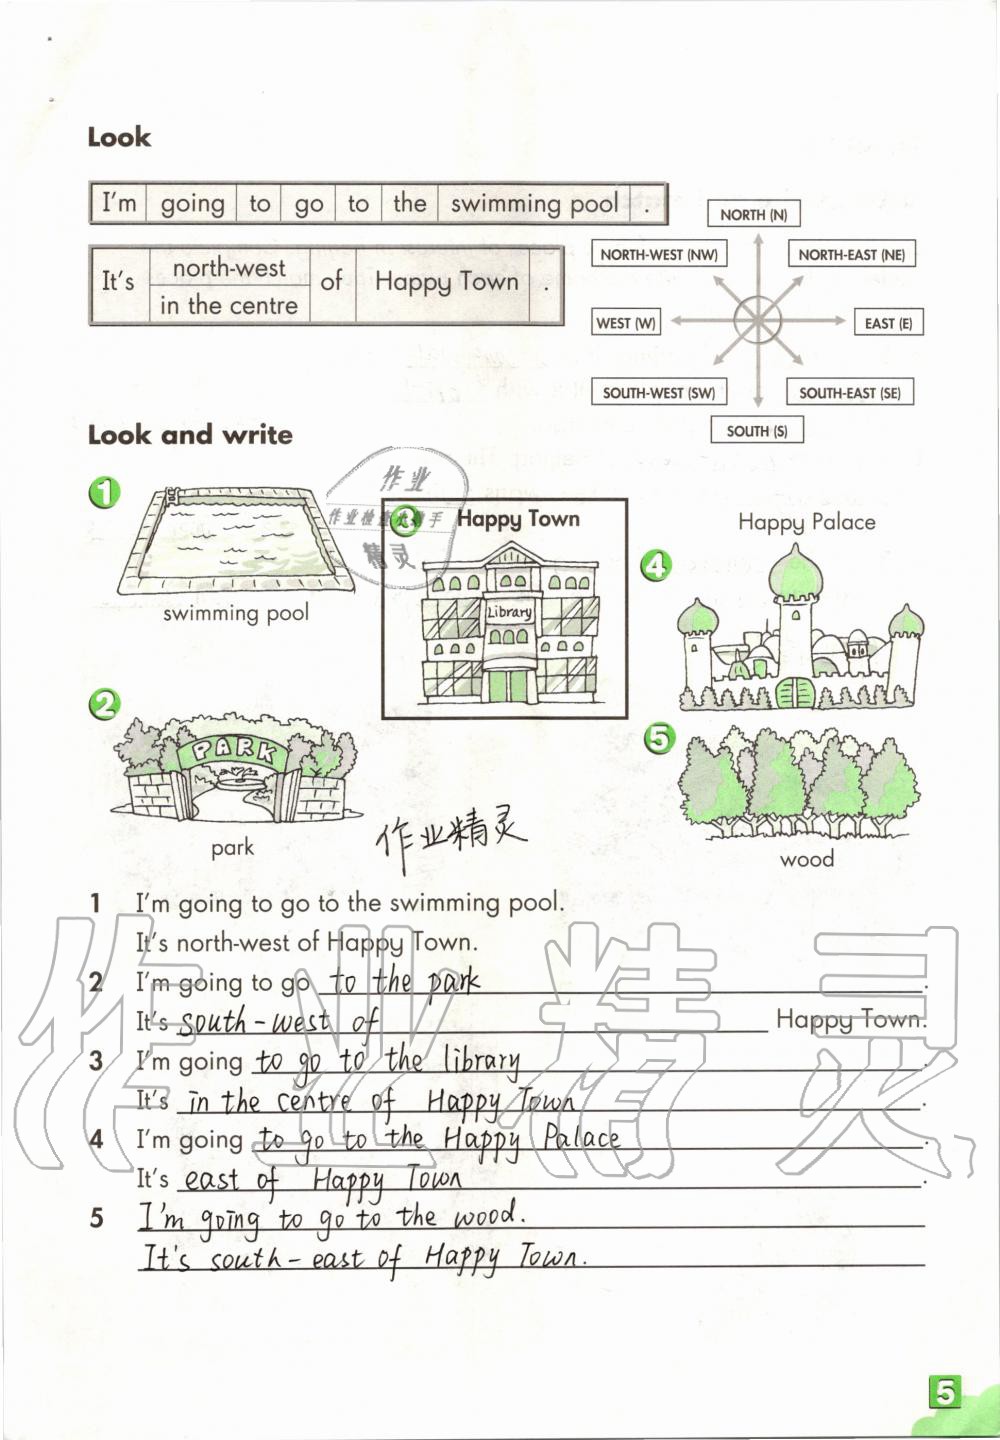 Look
I'm going to go to the swimming pool .
It's north-west of Happy Town .
in the centre
NORTH (N)
NORTH-WEST (NW)
NORTH-EAST (NE)
WEST (W)
EAST (E)
SOUTH-WEST (SW)
SOUTH-EAST (SE)
SOUTH (S)
Look and write
1
swimming pool
作业
精灵
3 Happy Town
Library
Happy Palace
4
2
PARK
park
5
wood
作业精灵
1 I'm going to go to the swimming pool.
It's north-west of Happy Town.
2 I'm going to go to the park.
It's south-west of Happy Town.
3 I'm going to go to the library.
It's in the centre of Happy Town.
4 I'm going to go to the Happy Palace.
It's east of Happy Town.
5 I'm going to go to the wood.
It's south-east of Happy Town.
作业精灵
5